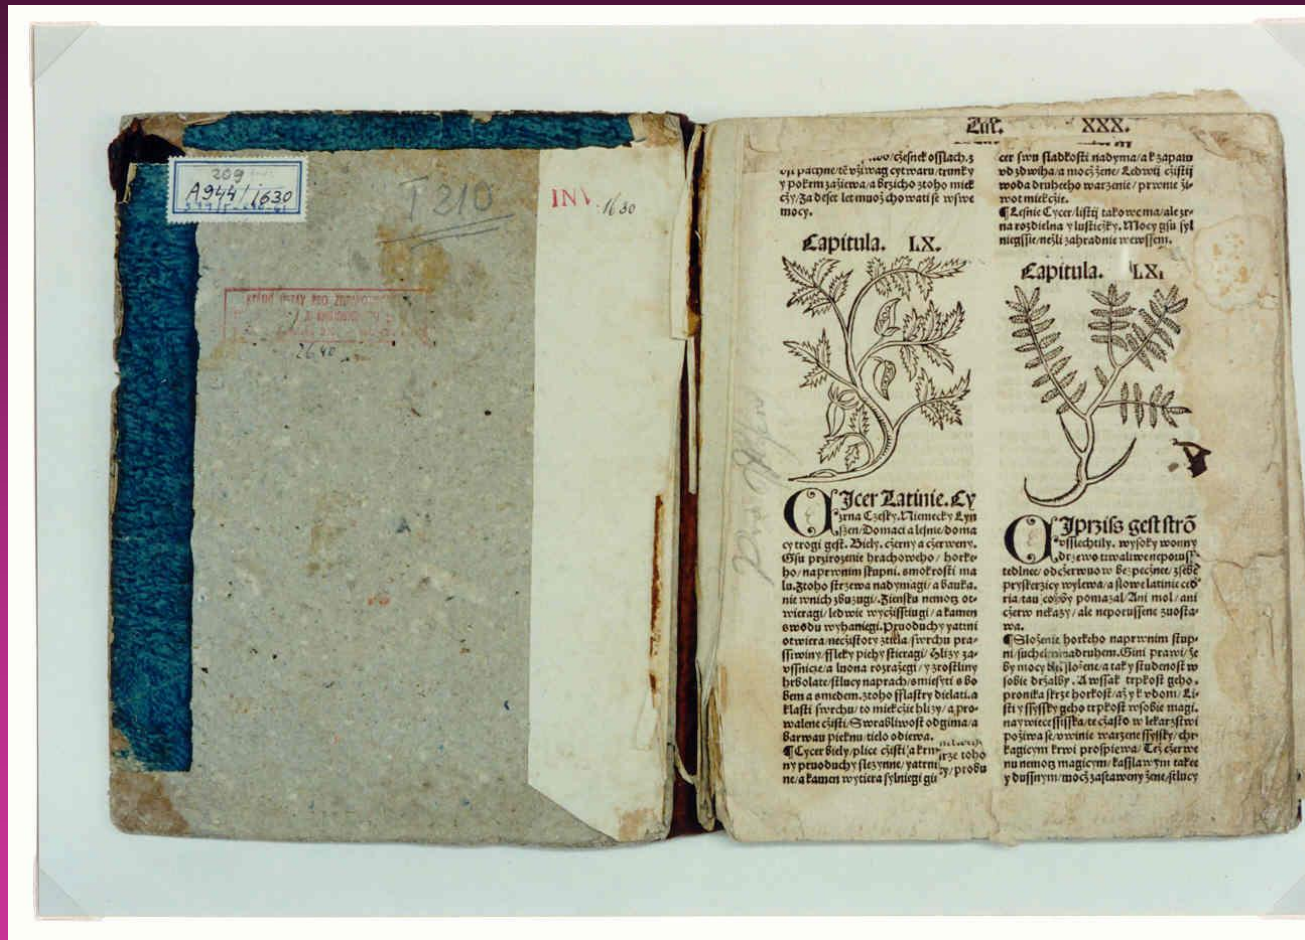 209
A944/1630
T 210
INV. 1630
2640
XXX.
czesnek osslach. z
wzijwag cytwaru/ trunky
y pokrm zaziewa/ a brzicho ztoho miek
czy/ Za deset let muoz chowati se wswe
mocy.
Capitula. LX.
CIcer Latinie. Cy
zrna Czesky. Niemecky Zyn
ssen/ Domaci a lesnie/ doma
cy trogi gest. Biely. czerny a czerweny.
Gsu przirozenie hrachoweho/ horke-
ho/ naprwnim stupni. smokrosti ma
lu. Ztoho strzewa nadymagi/ a bauka.
nie wnich zbuzugi. Ziensku nemoz ot-
wieragi/ ledwie wyczissciugi/ a kamen
swodu wyhaniegi. Pruoduchy yatrni
otwiera neczistoty ztiela swrchu pra-
ssiwiny/ ffleky piehy stieragi/ Hlizy za-
vssnicze/ a luona rozrazegi/ y zrostliny
hrbolate/ stlucy naprach/ smiesyti s bo
bem a smedem. ztoho fflastry dielati. a
klasti swrchu/ to miekczie hlizy/ a pro-
walene czisti/ Swrabliwost odgima/ a
barwau pieknu tielo odiewa.
¶ Cycer biely/ plice czisti/ a krwi
ny pruoduchy slezynne/ yatrni
ne/ a kamen wytiera sylniegi
cer swu sladkosti nadyma/ a k zapalu
wd zdwiha/ a mocz zene/ Ledwij czistij
woda druheho warzenie/ prwnie zi-
wot miekczie.
¶ Lesnie Cycer/ listij takowe ma/ ale zr-
na rozdielna y lusticzky. Mocy gsu syl
niegssie/ nezli zahradnie wewssem.
Capitula. LXI
CIprziss gest stro
vsslechtily. wysoky wonny
drzewo trwaliwe nepotuss-
tedlne/ odczerwuow bezpeczne/ zsebe
pryskerzicy wylewa/ a slowe latinie ced
ria/ tau cozby pomazal/ Ani mol/ ani
czerw nekazy/ ale neporussene zuosta-
wa.
¶ Slozenie horkeho naprwnim stup-
ni/ suche nadruhem. Gini prawi/ ze
by mocy bli slozene/ a taky studenost w
sobie drzalby. A wssak trpkost geho.
pronika skrze horkost/ az y k vdom/ Li-
sti y ssyssky geho trpkost wsobie magi.
naywiece ssisska/ te czasto w lekarzstwi
pozywa se/ wwinie warzene ssyssky/ chr-
kagicym krwi prospiewa/ Tez czerwe
nu nemoz magicym/ kasslawym take
y dussnym/ mocz zastaweny zene/ stlucy